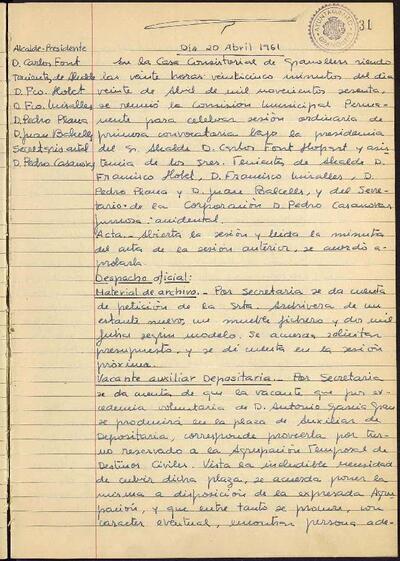 31
AYUNTAMIENTO
Dia 20 Abril 1961
Alcalde-Presidente
D. Carlos Font
Tenientes de Alcalde
D. Fco. Holet
D. Fco. Miralles
D. Pedro Plana
D. Juan Balcells
Secretario actal
D. Pedro Casanovas
En la Casa Consistorial de Granollers siendo
las veinte horas veinticinco minutos del dia
veinte de Abril de mil novecientos sesenta,
se reunió la Comisión Municipal Perma-
nente para celebrar sesión ordinaria de
primera convocatoria bajo la presidencia
del Sr. Alcalde D. Carlos Font y asis
tencia de los Sres. Tenientes de Alcalde D.
Francisco Holet, D. Francisco Miralles, D.
Pedro Plana y D. Juan Balcells, y del Secre-
tario de la Corporación D. Pedro Casanovas
accidental.
Acta.- Abierta la sesión y leida la minuta
del acta de la sesión anterior, se acordó a-
probarla.
Despacho oficial:
Material de archivo.- Por Secretaria se da cuenta
de petición de la Srta. Archivera de un
estante nuevo, un mueble fichero y dos mil
fichas según modelo. Se acuerda solicitar
presupuesto, y se dé cuenta en la sesión
próxima.
Vacante auxiliar Depositaria.- Por Secretaria
se da cuenta de que la vacante que por ex-
cedencia voluntaria de D. Antonio Garcia
se producirá en la plaza de Auxiliar de
Depositaria, corresponde proveerla por tur-
no reservado a la Agrupación Temporal de
Destinos Civiles. Vista la ineludible necesidad
de cubrir dicha plaza, se acuerda poner la
misma a disposición de la expresada Agru-
pación, y que entre tanto se procure, con
caracter eventual, encontrar persona ade-